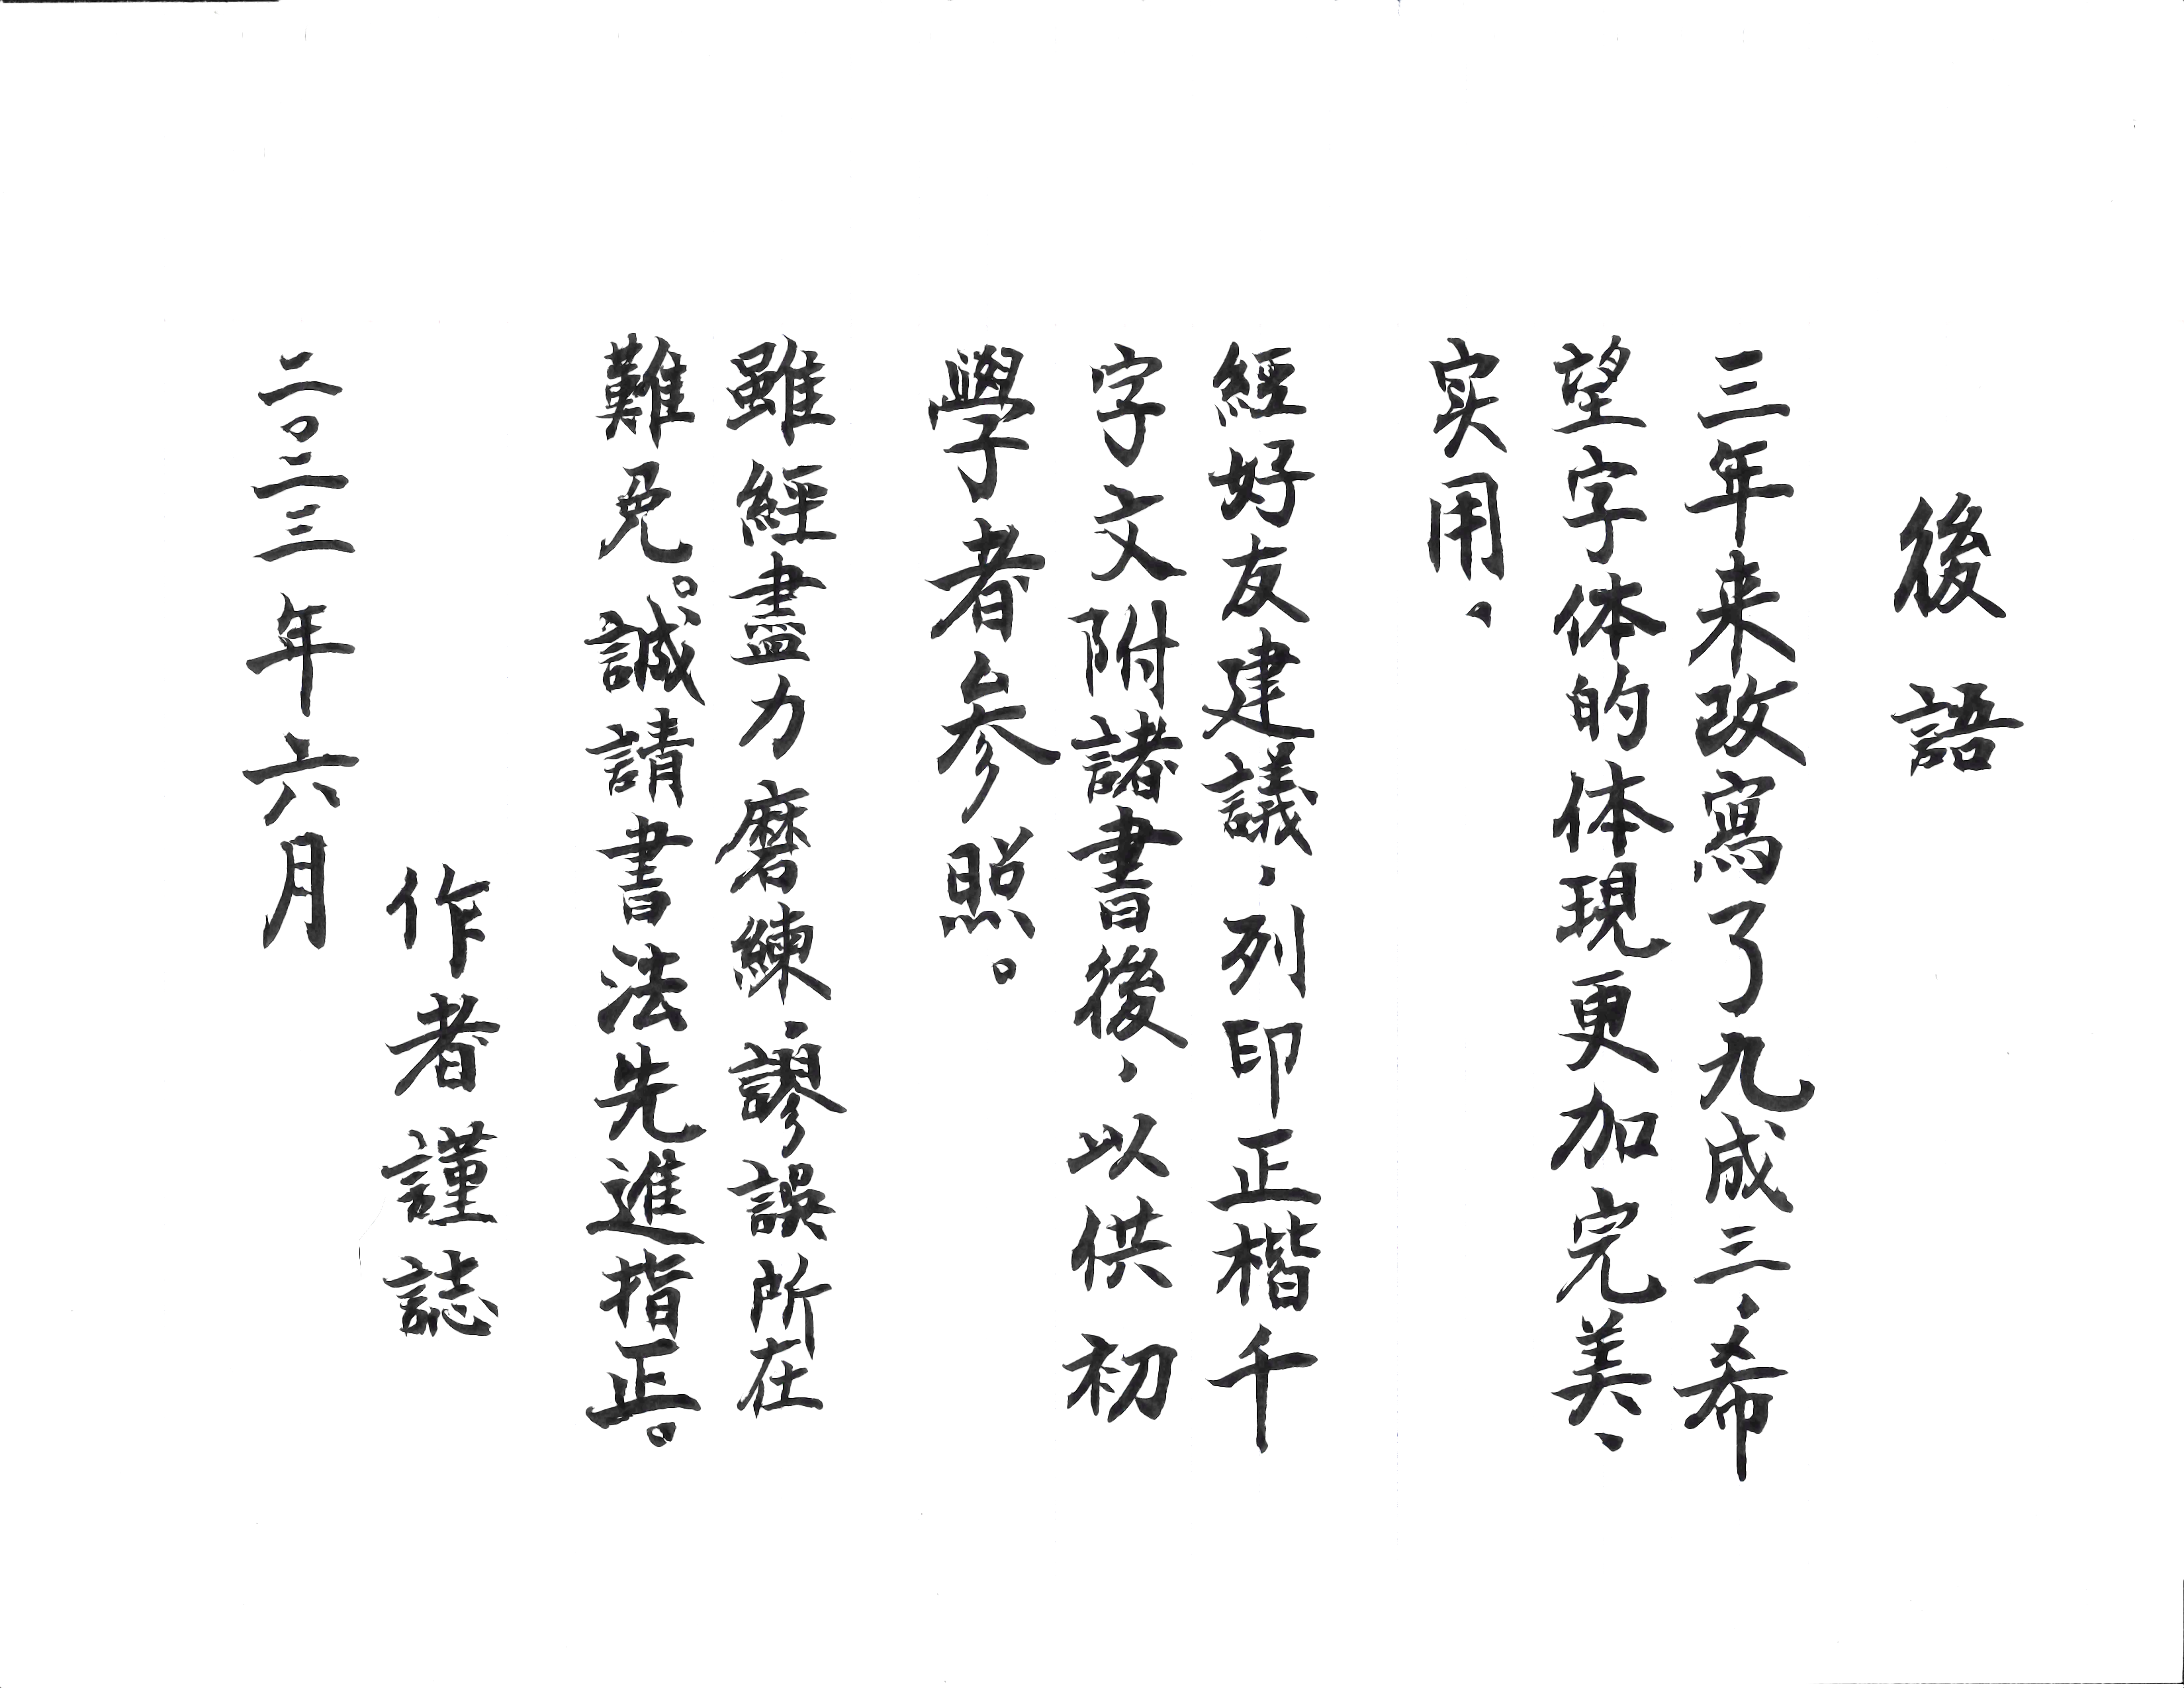 後語
三年来改寫了九成三，希
望字体的体現更加完美、
实用．
經好友建議，列印正楷千
字文附諸書後，以供初
學者參照。
雖經盡力磨練，謬誤所在
難免。誠請書法先進指正。
作者謹誌
二〇二三年六月